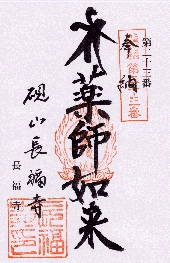 第二十三番
奉納
薬師如来
硯山長福寺
長福寺